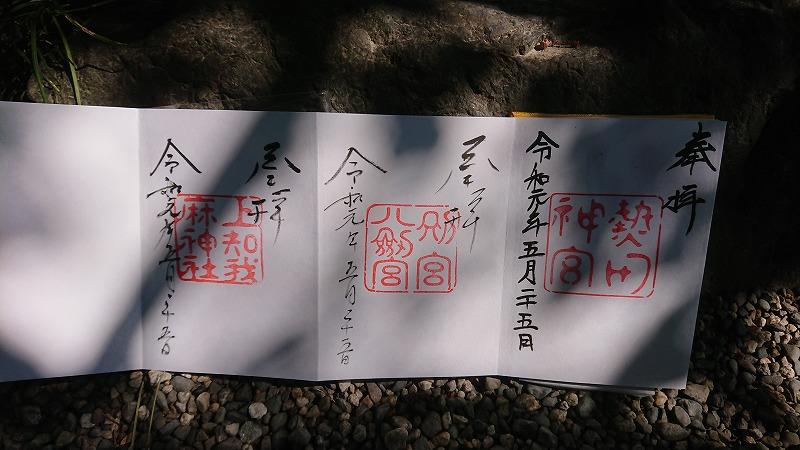 奉拝
熱田
神宮
令和元年五月二十五日
奉拝
別宮
八剣宮
令和元年五月二十五日
奉拝
上知我
麻神社
令和元年五月二十五日